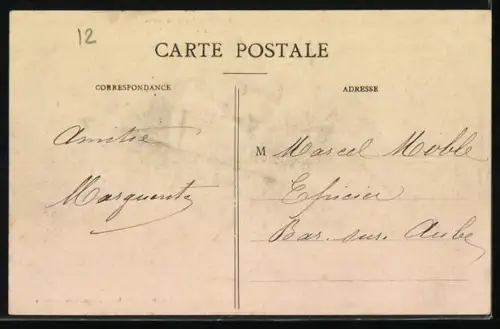 12
CARTE POSTALE
CORRESPONDANCE
ADRESSE
Amitié
Marguerite
M Marcel Noble
Epicier
Bar. sur. Aube